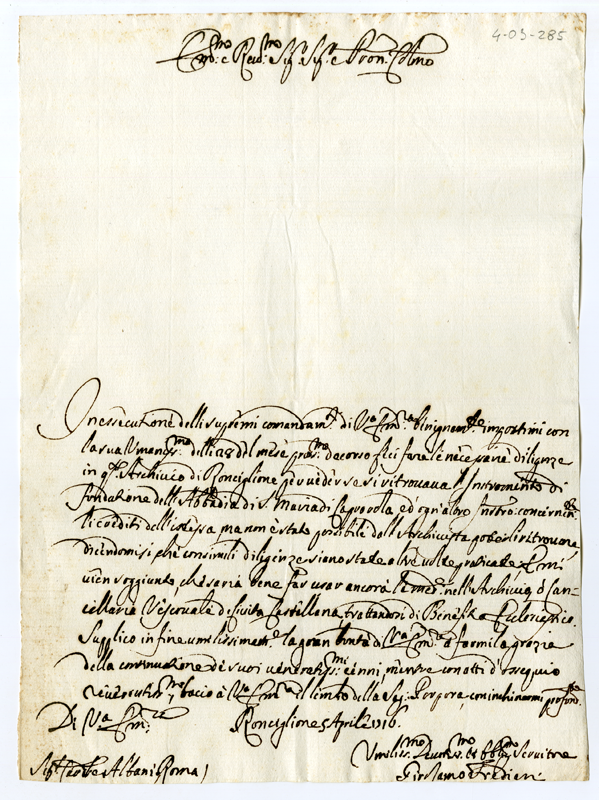 4-03-285
Em.mo e Rev.mo Sig.r Sig.r e Pron. Col.mo
In essecutione delli supremi comandam.ti di V.a Em.a benignam.te impostimi con
la sua Umaniss.ma delli 28 del mese pros.mo decorso feci fare le necessarie diligenze
in q.to Archivio di Ronciglione per vedere se si ritrovava l'Instromento di
fondatione dell'Abbadia di S. Maria di Caprarola, ed ogn'altro Instro. concernen.te
li crediti dell'istessa, ma non è stato possibile dall'Archivista poterli ritrovare,
dicendomisi che consimili diligenze siano state altre volte praticate, e mi
vien soggiunto, che saria bene far usar ancora le med.e nell'Archivio, ò Can-
cellaria Vescovale di Civita Castellana, trattandosi di Benef.o Ecclesiastico.
Supplico in fine umilissimam.te la gran bontà di V.a Em.a a farmi la grazia
della continuatione de suoi veneratiss.mi cenni, mentre con atti d'ossequio
bacio à V.a Em.a il lembo della Sag. Porpora, con inchinarmi profond.te
Di V.a Em.za Ronciglione 5 Aprile 1716.
Umiliss.mo Devotiss.mo et Obblig.mo Servitore
Albani Roma) Girolamo